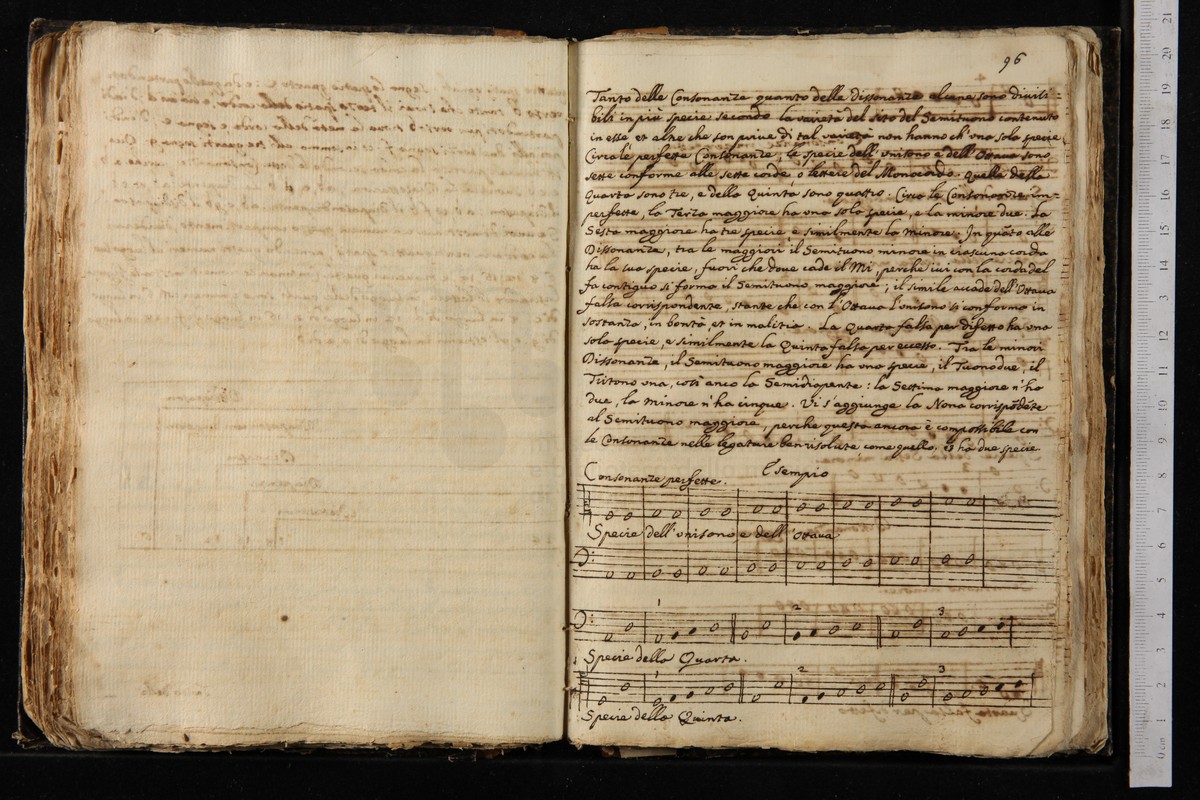 96
Tanto delle Consonanze quanto delle Dissonanze alcune sono divisi=
bili in più specie secondo la varietà del sito del Semituono contenuto
in esse, et altre che son prive di tal varietà non hanno ch'una sola specie.
Circa le perfette Consonanze, le specie dell'unisono e dell'Ottava sono
sette conforme alle sette corde, o lettere del Monocordo. Quelle della
Quarta sono tre, e della Quinta sono quattro. Circa le Consonanze im=
perfette, la Terza maggiore ha una sola specie, e la minore due. La
Sesta maggiore ha tre specie e similmente la minore. In quãto alle
Dissonanze, tra le maggiori il Semituono minore in ciascuna corda
ha la sua specie, fuori che dove cade il Mi, perche ivi con la corda del
fa contiguo si forma il Semituono maggiore; il simile accade dell'Ottava
falsa corrispondente, stante che con l'Ottava l'unisono si conforma in
sostanza, in bontà, et in malitia. La Quarta falsa per difetto ha una
sola specie, e similmente la Quinta falsa per eccesso. Tra le minori
Dissonanze, il Semituono maggiore ha una specie, il Tuono due, il
Tritono una, così anco la Semidiapente: la Settima maggiore n'ha
due, la minore n'ha cinque. Vi s'aggiunge la Nona corrispõdẽte
al Semituono maggiore, perche questa ancora è compossibile con
le Consonanze nelle legature ben risolute come quello, e ha due specie.
Consonanze perfette. Esempio
Specie dell'unisono e dell'Ottava
1 2 3
Specie della Quarta.
1 2 3
Specie della Quinta.